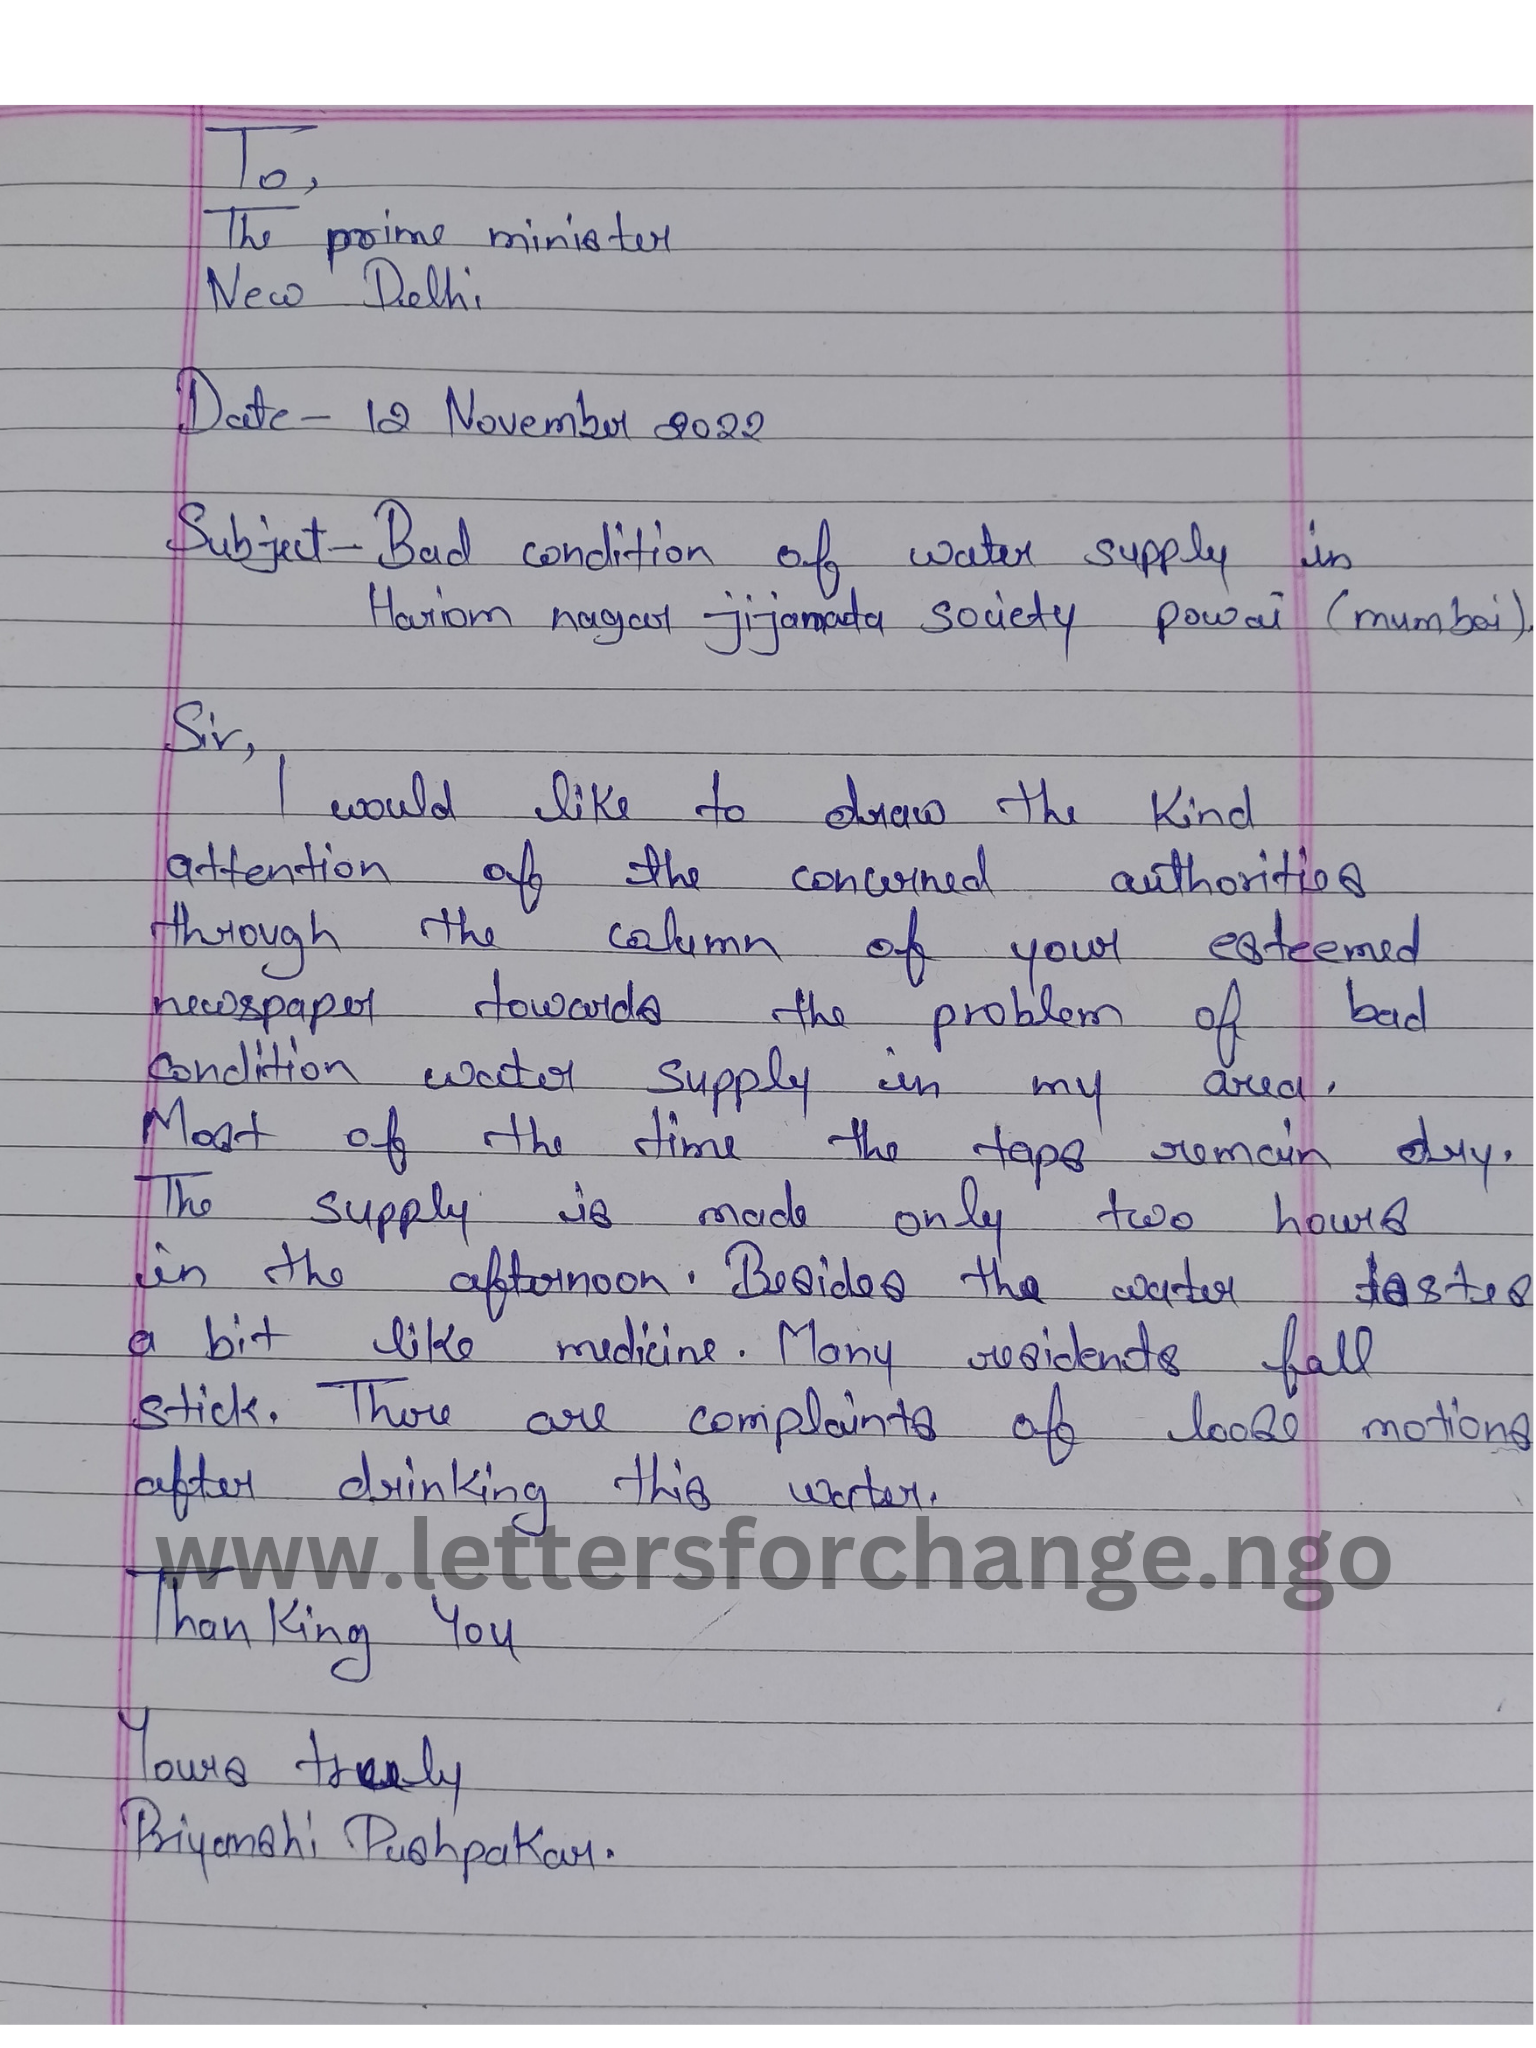 To,
The prime minister
New Delhi
Date - 12 November 2022
Subject - Bad condition of water supply in
Hariom nagar jijamata society powai (mumbai).
Sir,
I would like to draw the kind
attention of the concerned authorities
through the column of your esteemed
newspaper towards the problem of bad
condition water supply in my area.
Most of the time the taps remain dry.
The supply is made only two hours
in the afternoon. Besides the water tastes
a bit like medicine. Many residents fall
stick. There are complaints of loose motions
after drinking this water.
www.lettersforchange.ngo
Thanking You
Yours truly
Priyanshi Pushpakar.